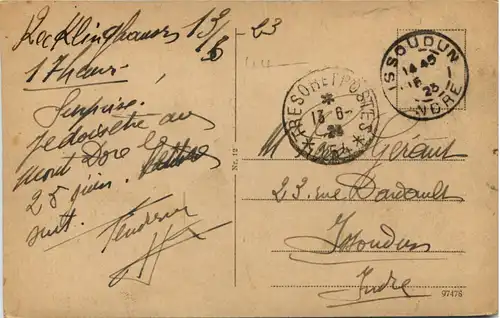 Recklinghausen 13/6 23
17 heures
Surprise.
je dois être au
Mont Dore le
25 juin. Lettre
suit.
Tendresse
Nr. 19
TRESOR ET POSTES
13-6
23
ISSOUDUN
14 45
16
INDRE
M Gérant
23 rue Dardault
Issoudun
Indre
97476